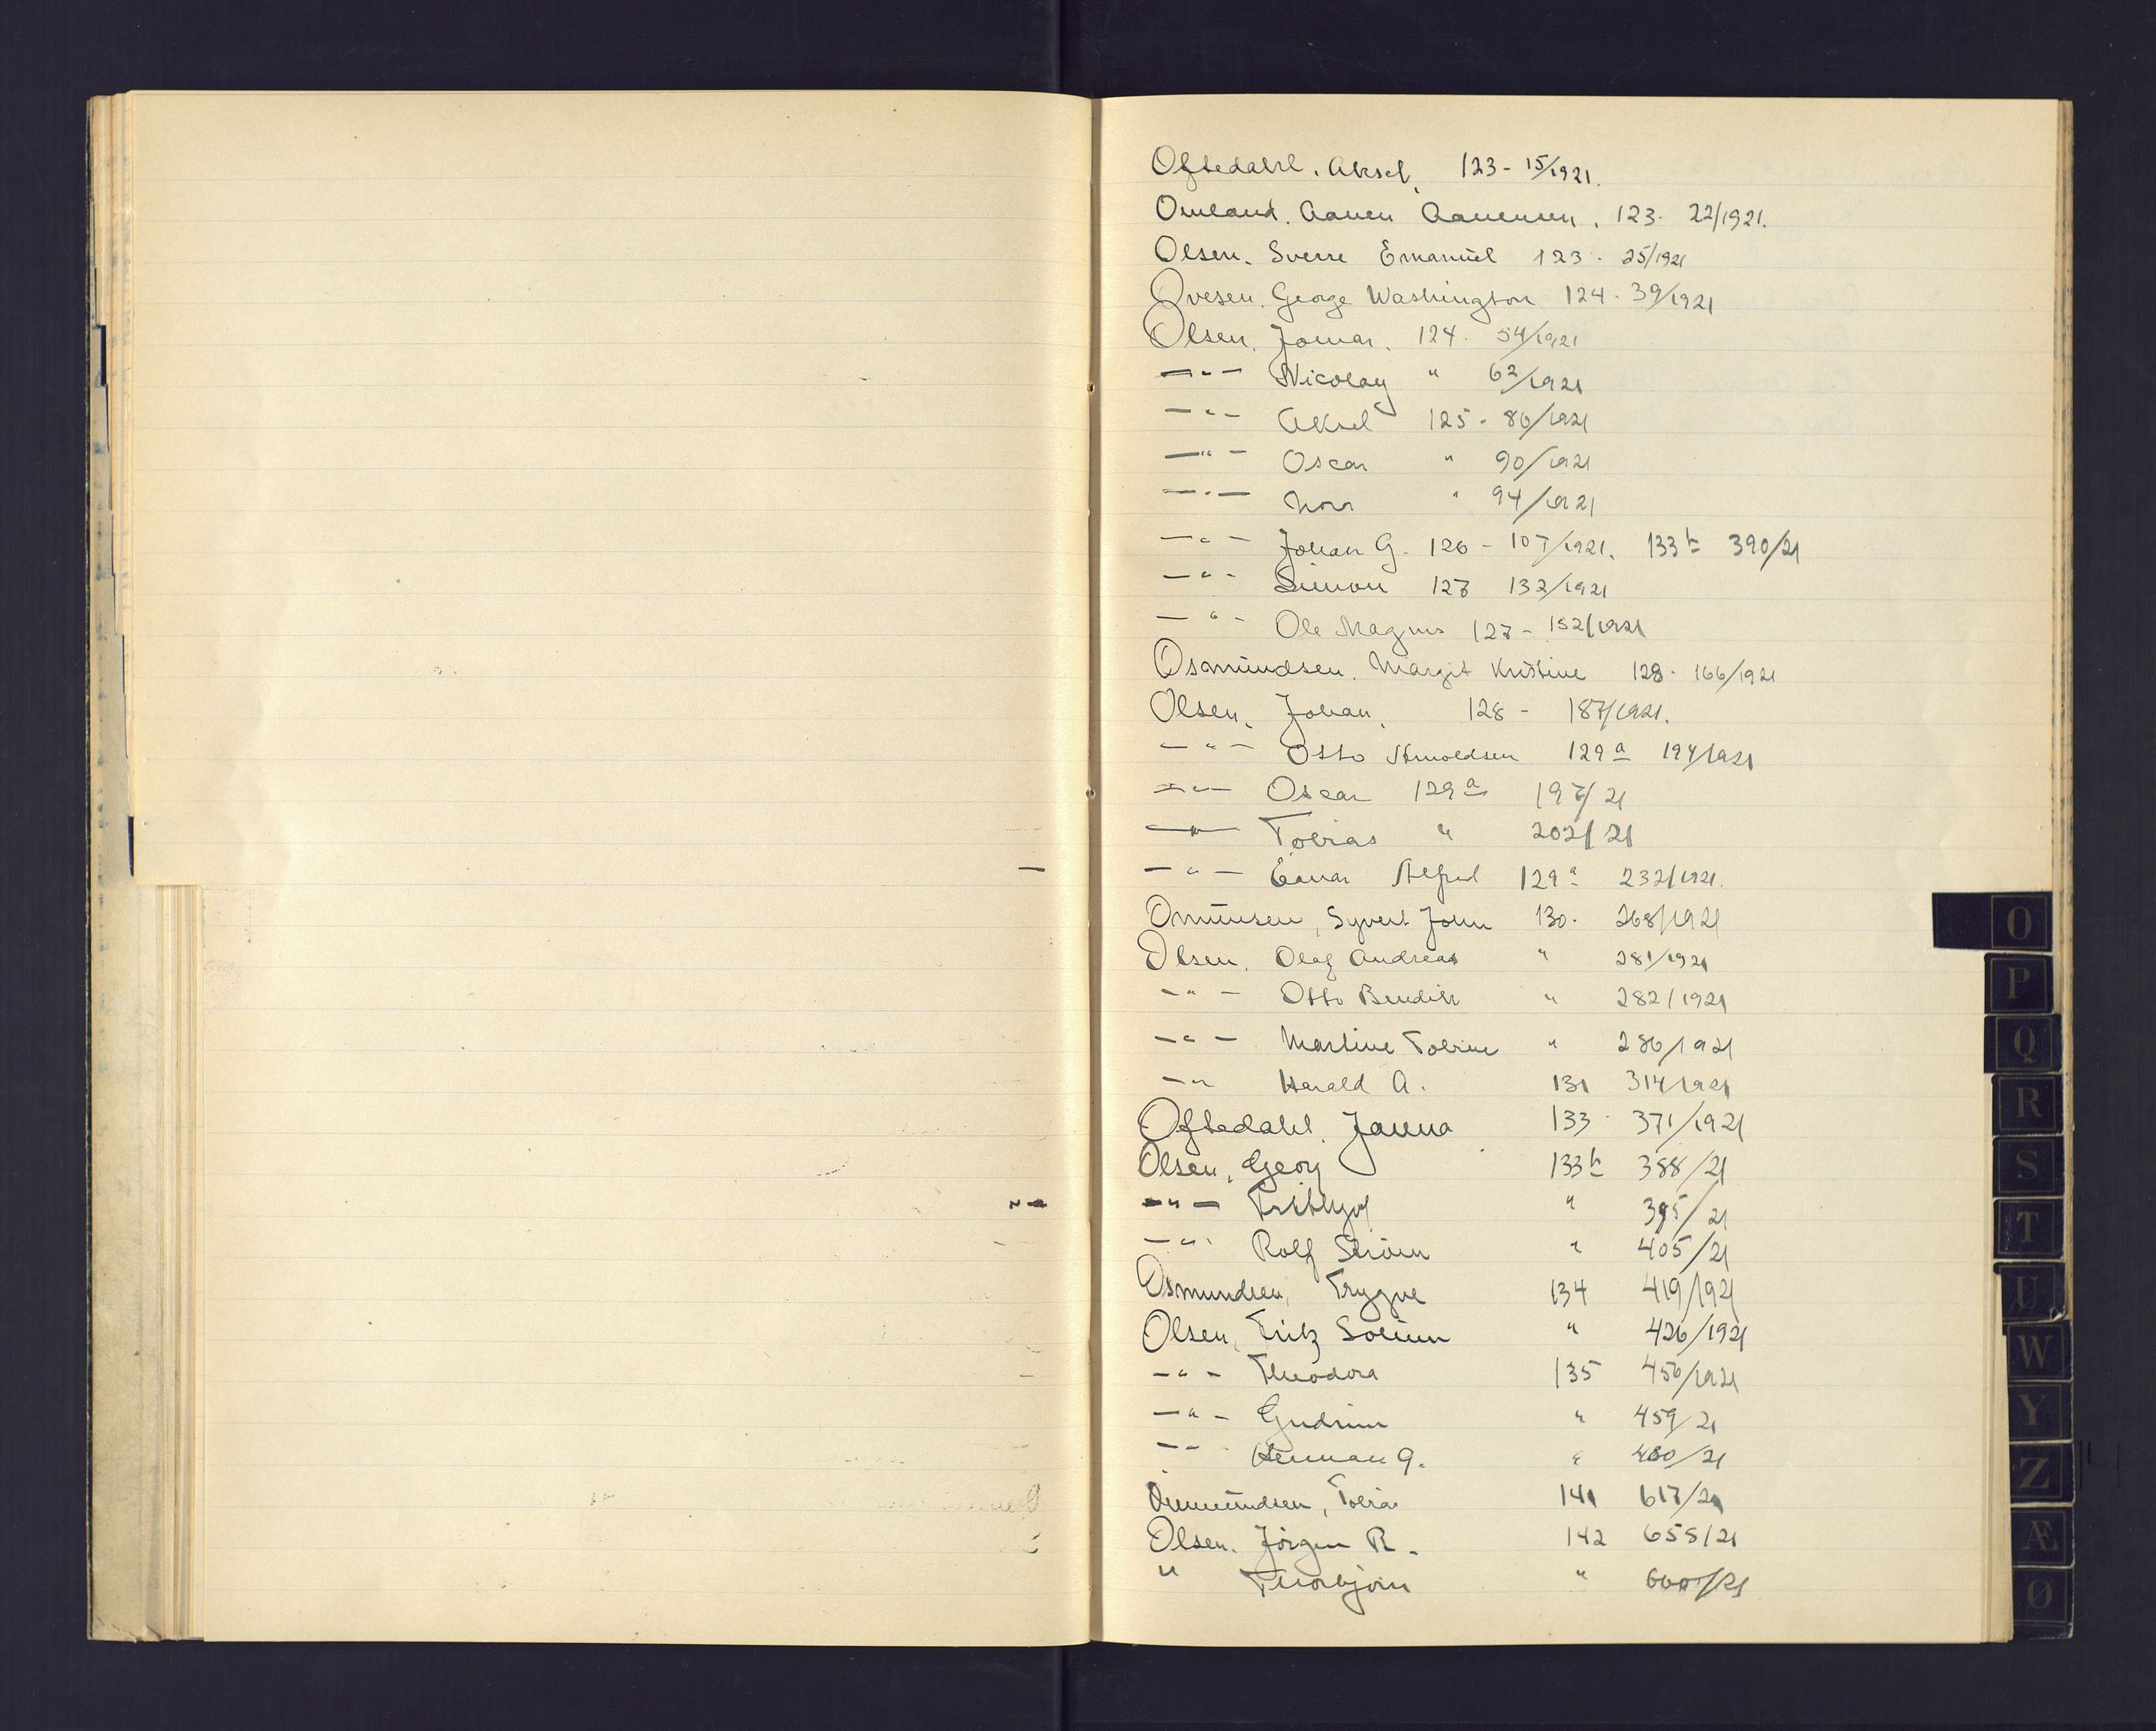 Oftedahl. Aksel. 123 - 15/1921.
Omland. Aanen Aanensen. 123. 22/1921.
Olsen. Sverre Emanuel 123. 25/1921
Ovesen. George Washington 124. 39/1921
Olsen. Jomar. 124. 54/1921
— " — Nicolay " 62/1921
— " — Aksel 125 - 86/1921
— " — Oscar " 90/1921
— " — " 94/1921
— " — Johan G. 126 - 107/1921. 133 b 390/21
— " — Simon 127 132/1921
— " — Ole Magnus 127 - 152/1921
Osmundsen. Margit Kristine 128. 166/1921
Olsen. Johan. 128 - 187/1921.
— " — Otto Arnoldsen 129 a 194/1921
— " — Oscar 129 a 197/21
— " — Tobias " 202/21
— " — Einar Alfred 129 a 232/1921.
Omunsen, Syvert John 130. 268/1921
Olsen. Olaf Andreas " 281/1921
— " — Otto Bendik " 282/1921
— " — Martine Tobine " 286/1921
— " Harald A. 131 314/1921
Oftedahl. Janna 133. 371/1921
Olsen, Georg 133 b 388/21
— " — Frithjof " 395/21
— " Rolf Strøm " 405/21
Osmundsen, Trygve 134 419/1921
Olsen, Fritz " 426/1921
— " — Theodora 135 456/1921
— " — Gudrun " 459/21
— " Herman G. " 480/21
Tobias 141 617/21
Olsen. Jörgen R. 142 658/21
" Thorbjørn " 660/21
O
P
Q
R
S
T
U
W
Y
Z
Æ
Ø